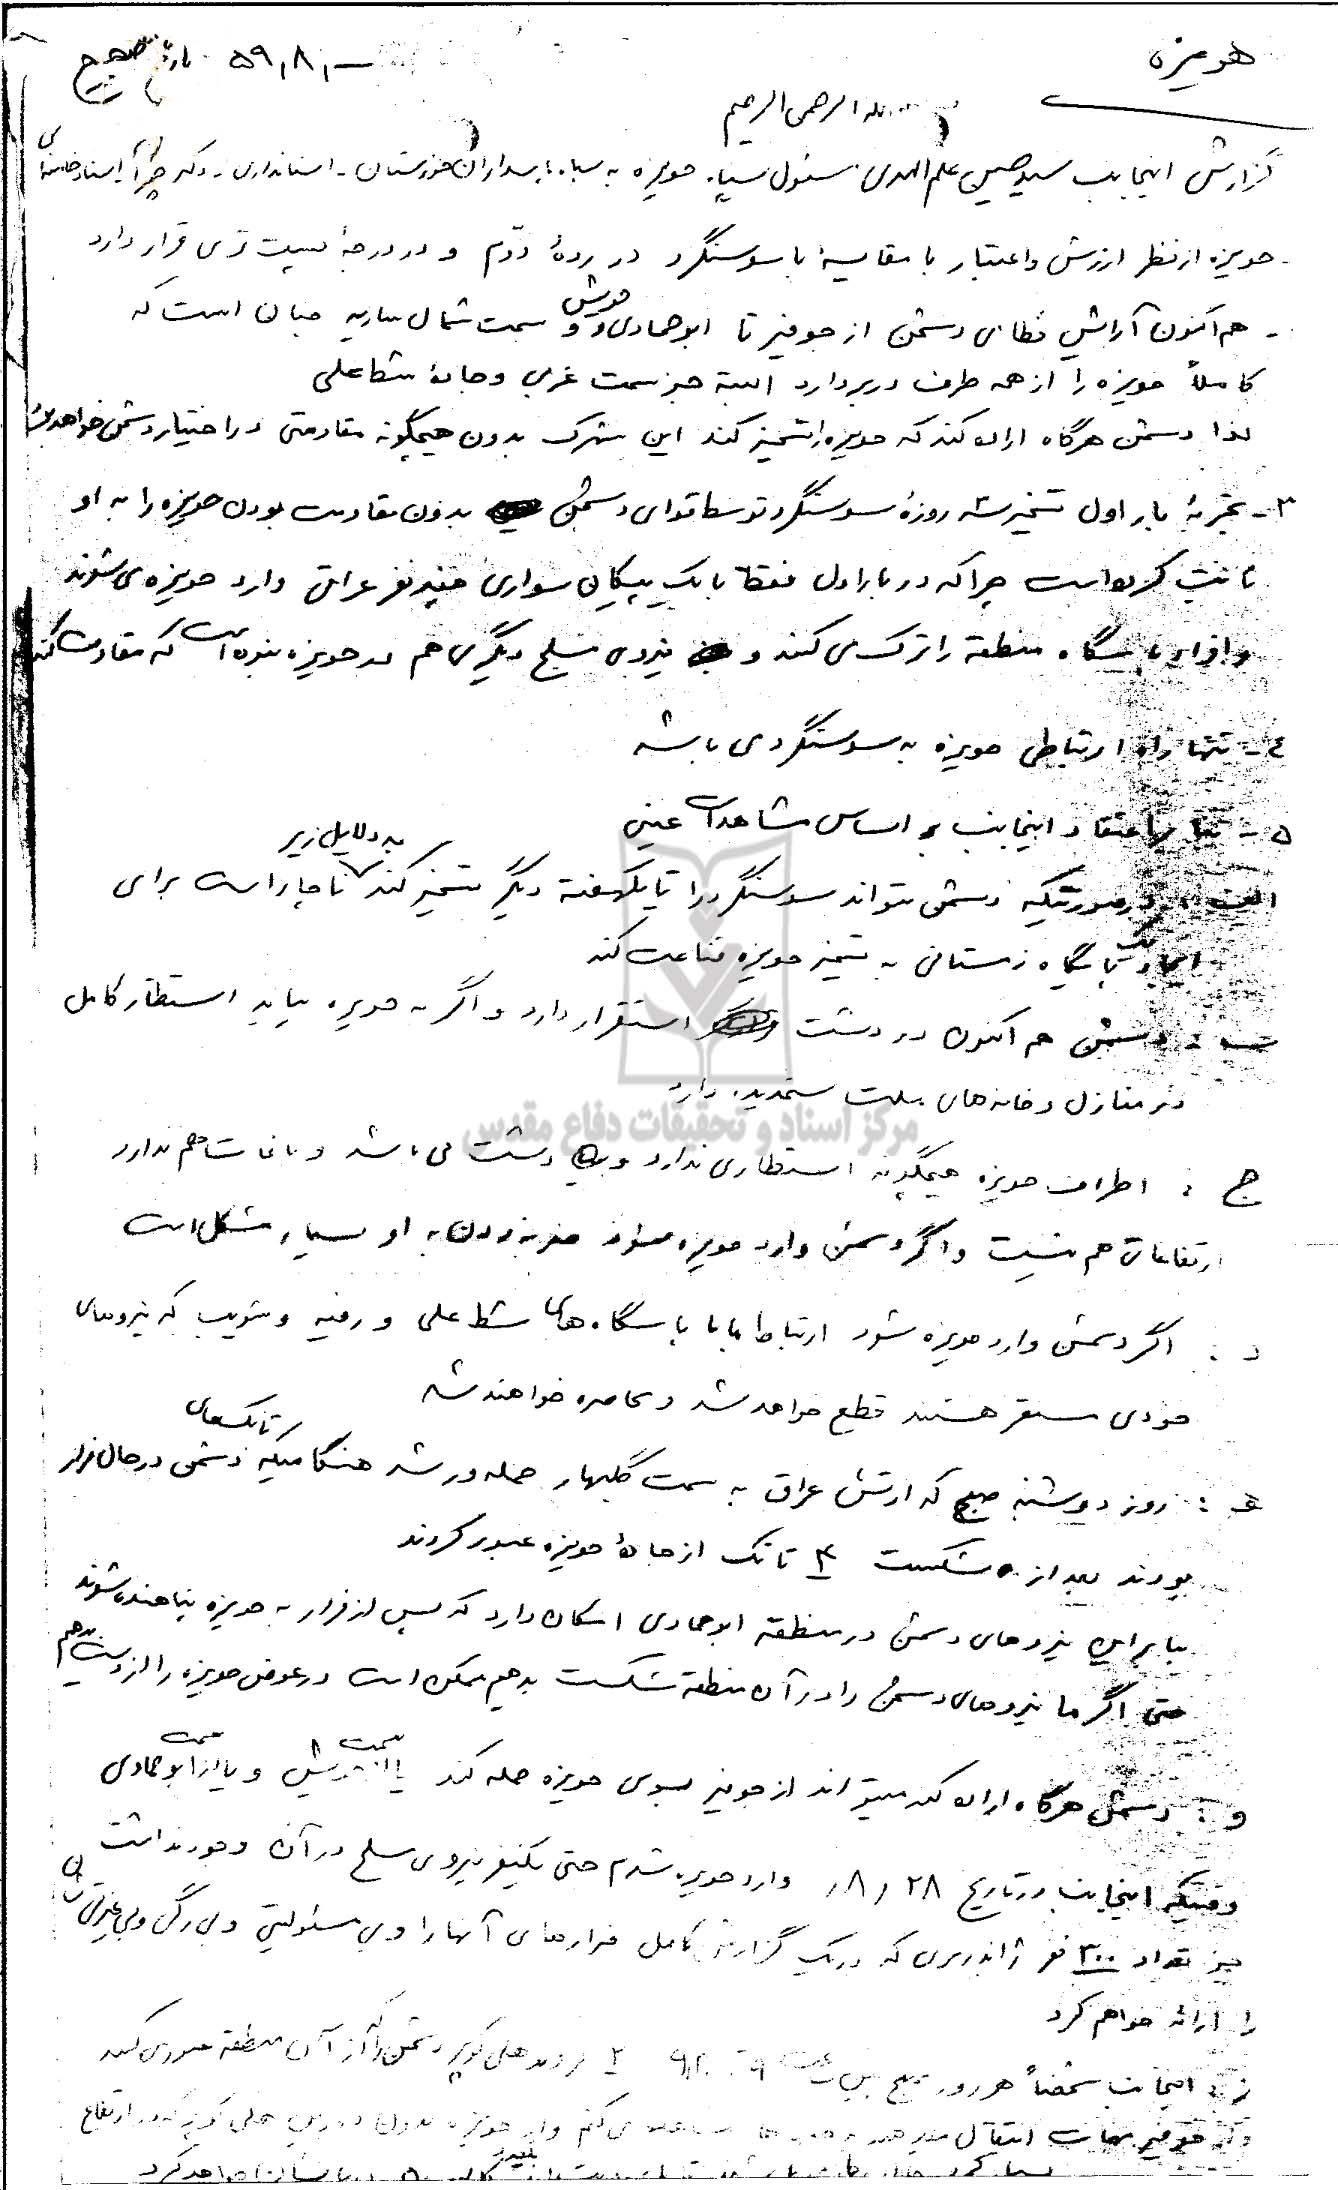 هویزه
۵۹٫۸٫ـ
الله الرحمن الرحیم
گزارش اینجانب سید حسین علم الهدی مسئول سپاه هویزه به سپاه پاسداران خوزستان - استانداری - دکتر چمران
هویزه از نظر ارزش و اعتبار با مقایسهٔ با سوسنگرد در ردهٔ دوم و در درجهٔ پست تری قرار دارد
- هم اکنون آرایش نظامی دشمن از جوفیر تا ابوحمادی و هورش و سمت شمال ساریه چنان است که
کاملاً هویزه را از همه طرف در بر دارد البته جز سمت غربی و جادهٔ شط علی
لذا دشمن هرگاه اراده کند که هویزه را تسخیر کند این شهرک بدون هیچگونه مقاومتی در اختیار دشمن خواهد بود
۳- تجربهٔ بار اول تسخیر سه روزهٔ سوسنگرد توسط قوای دشمن بدون مقاومت بودن هویزه را به او
ثابت کرده است چرا که در بار اول فقط با یک پیکان سواری چند نفر عراقی وارد هویزه می شوند
و افراد پاسگاه منطقه را ترک می کنند و نیروی مسلح دیگری هم در هویزه نبوده است که مقاومت کند
٤- تنها راه ارتباطی هویزه به سوسنگرد می باشد
۵- بنا به اعتقاد اینجانب بر اساس مشاهدات عینی
الف: در صورتیکه دشمن نتواند سوسنگرد را تا یکهفته دیگر تسخیر کند به دلایل زیر ناچار است برای
ایجاد یک پایگاه زمستانی به تسخیر هویزه قناعت کند
ب: دشمن هم اکنون در دشت استقرار دارد و اگر به هویزه بیاید استتار کامل
در منازل و خانه های ملت ستمدیده دارد
مرکز اسناد و تحقیقات دفاع مقدس
ج: اطراف هویزه هیچگونه استتاری ندارد و دشت می باشد و باغات هم ندارد
ارتفاعاتی هم نیست و اگر دشمن وارد هویزه بشود ضربه زدن به او بسیار مشکل است
د: اگر دشمن وارد هویزه شود ارتباط ما با پاسگاه های شط علی و رفیه و که نیروهای
خودی مستقر هستند قطع خواهد شد و محاصره خواهند شد
هـ: روز دوشنبه صبح که ارتش عراق به سمت گلبهار حمله ور شد هنگامیکه تانکهای دشمن در حال فرار
بودند بعد از شکست ۳ تانک از جادهٔ هویزه عبور کردند
بنابراین نیروهای دشمن در منطقه ابوحمادی امکان دارد که پس از فرار به هویزه پناهنده شوند
حتی اگر ما نیروهای دشمن را در آن منطقه شکست بدهیم ممکن است در عوض هویزه را از دست بدهیم
و: دشمن هرگاه اراده کند میتواند از جوفیر بسوی هویزه حمله کند یا از سمت و یا از سمت ابوحمادی
وقتیکه اینجانب در تاریخ ۸٫۲۸ وارد هویزه شدم حتی یکنفر نیروی مسلح در آن وجود نداشت
جز تعداد ۳۰۰ نفر ژاندارمری که در یک گزارش کامل فرارهای آنها را و بی مسئولیتی و بی رگی و بی غیرتی
را ارائه خواهم کرد
ز: اینجانب شخصاً هر روز صبح بین ساعت ۲ فروند هلی کوپتر دشمن را که از آن منطقه عبور می کنند
مهمات انتقال می دهند می کنم هویزه بدون هلی کوپتر که در ارتفاع